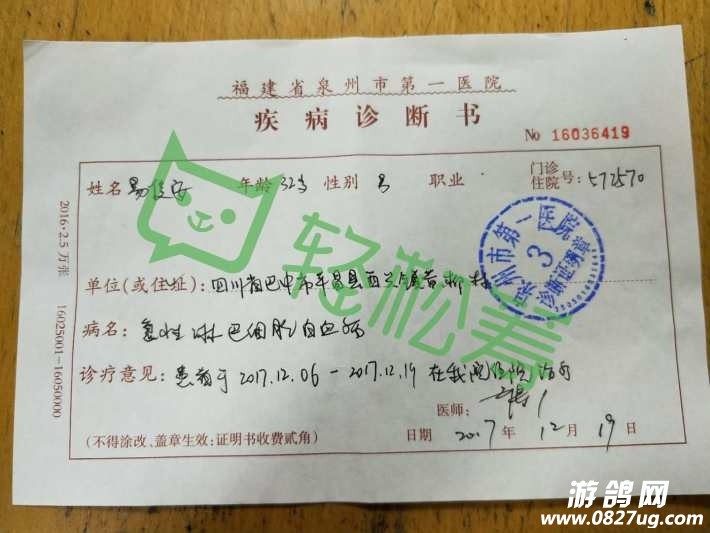 福建省泉州市第一医院
疾病诊断书
No 16036419
姓名 易 年龄 32岁 性别 男 职业 门诊住院号:572570
单位(或住址):四川省巴中市平昌县西兴镇青柳村
病名:急性淋巴细胞白血病
诊疗意见:患者于2017.12.06-2017.12.19在我院住院治疗
医师:
(不得涂改、盖章生效:证明书收费贰角) 日期 2017年12月19日
2016·2.5万张 16025001-16050000
泉州市第一医院
3
疾病证明
轻松筹
游鸽网
www.0827ug.com